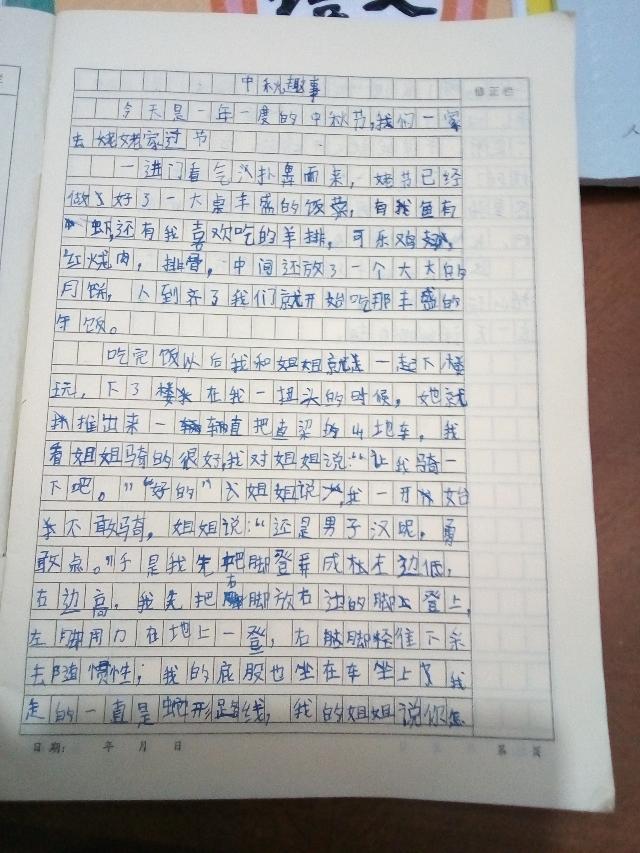 语文
中秋趣事
修正栏
今天是一年一度的中秋节,我们一家
去姥姥家过节
一进门香气扑鼻而来,姥爷已经
做了好了一大桌丰盛的饭菜,有鱼有
虾,还有我喜欢吃的羊排,可乐鸡
红烧肉,排骨,中间还放了一个大大的
月饼,人到齐了我们就开始吃那丰盛的
午饭。
吃完饭以后我和姐姐就一起下楼
玩,下了楼在我一扭头的时候,她就
推出来一辆直把连梁山地车,我
看姐姐骑的很好,我对姐姐说:“让我骑一
下吧。”“好的”姐姐说,我一开始
不敢骑,姐姐说:“还是男子汉呢,勇
敢点。”于是我先把脚登弄成左边低,
右边高,我先把右脚放右边的脚登上,
左脚用力在地上一登,右脚轻往下
去随惯性;我的屁股也坐在车坐上了我
走的一直是蛇形路线,我的姐姐说你怎
日期: 年 月 日
第 页